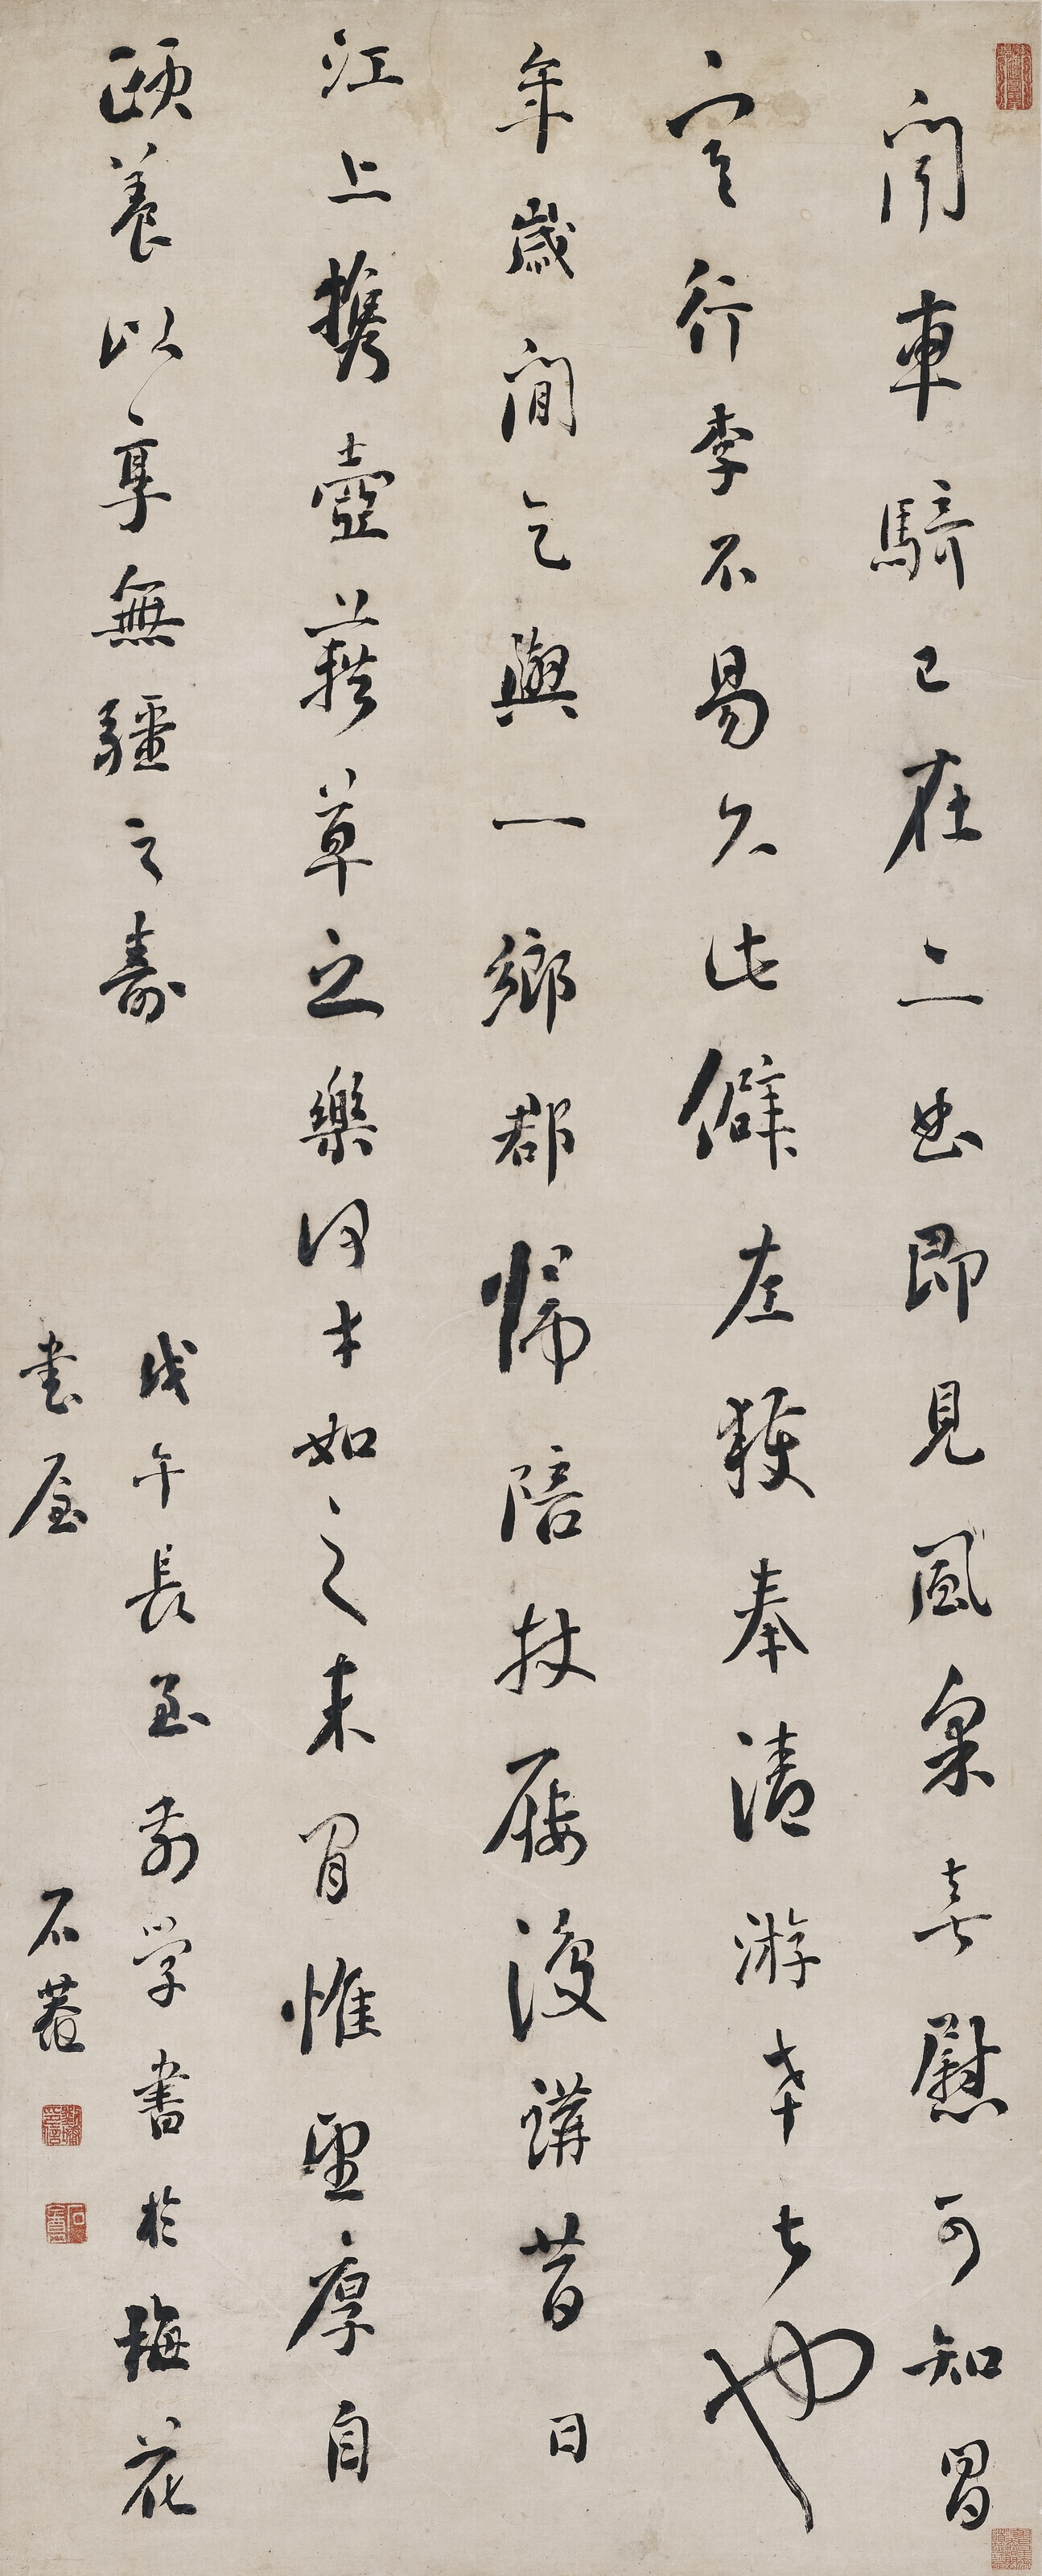 聞車騎已在二曲即見風采喜慰可知冒
寒行李不易久此僻左獲奉清游幸甚也
年歲間乞與一鄉郡歸陪杖屨復講昔日
江上攜壺藉草之樂何幸如之未間惟望厚自
頤養以享無疆之壽
戊午長至前学書於梅花
書屋 石菴